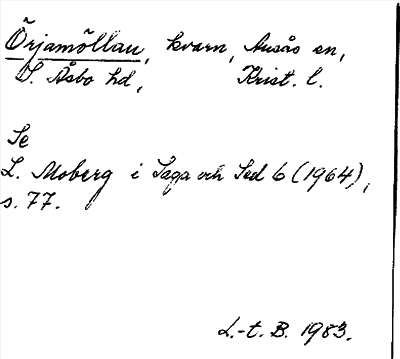 Örjamöllan, kvarn, Ausås sn,
S. Åsbo hd, Krist. l.
Se
L. Moberg i Saga och Sed 6 (1964),
s. 77.
L.-t. B. 1983.